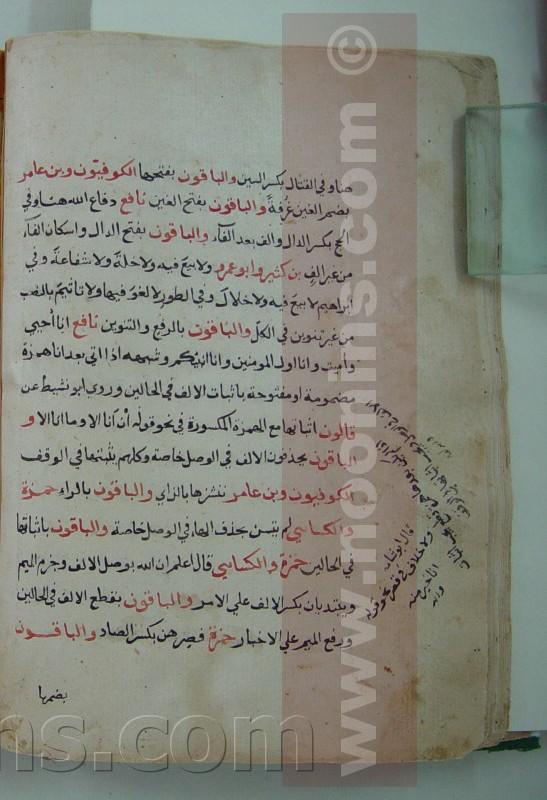 هنا وفي القتال بكسر السين والباقون بفتحها الكوفيون وبن عامر
بضم الغين غرفةً والباقون بفتح الغين نافع دفاع الله هنا وفي
الحج بكسر الدال والف بعد الفآء والباقون بفتح الدال واسكان الفآء
من غير الف بن كثير وابو عمرو ولا بيع فيه ولا خلة ولا شفاعة وفي
ابراهيم لا بيع فيه ولا خلال وفي الطور لا لغو فيها ولا تاثيم بالنصب
من غير تنوين في الكل والباقون بالرفع والتنوين نافع انا أحيي
وأميت وانا اول المومنين وانا انبئكم وشبهه اذا اتى بعد انا همزة
مضمومة او مفتوحة باثبات الالف في الحالين وروي ابو نشيط عن
قالون اثباتها مع الهمزة المكسورة في نحو قوله ان أنا الا وما انا الا و
الباقون بحذفون الالف في الوصل خاصة وكلهم يثبتها في الوقف
الكوفيون وبن عامر ننشزها بالزاي والباقون بالراء حمزة
والكسائي لم يتسن بحذف الهاء في الوصل خاصة والباقون باثباتها
في الحالين حمزة والكسائي قال اعلم ان الله بوصل الالف وجزم الميم
ويبتديان بكسر الالف علي الامر والباقون بقطع الالف في الحالين
ورفع الميم علي الاخبار حمزة فصرهن بكسر الصاد والباقون
بضمها
www.noorlins.com ©
ns.com